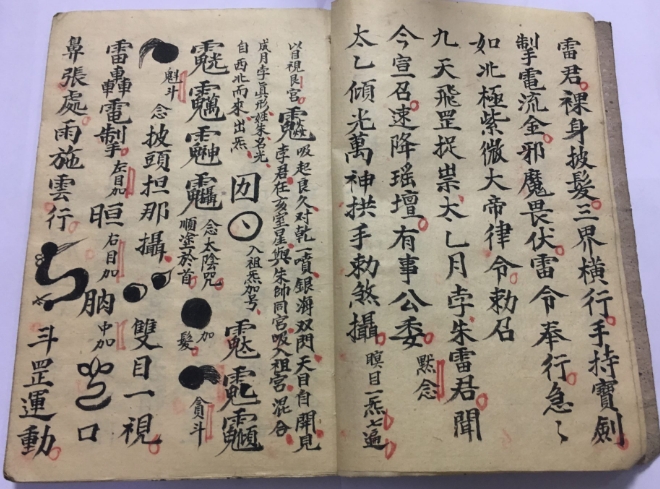 雷君裸身披髮三界橫行手持寶劍
掣電流金邪魔畏伏雷令奉行急〻
如北極紫微大帝律令勅召
九天飛罡捉祟太乙月孛朱雷君聞
今宣召速降瑤壇有事公委 默念
太乙傾光萬神拱手勅煞攝 瞑目一炁七遍
以目視艮宮 吸起良久对乾一噴銀海双閃天目自開見
成月孛真形姓朱名光 孛君在亥室星與朱帥同宮吸入祖宮混合
自西北而來出炁 囫 入祖炁加号
念太陰咒 順塗於首 加髮
魁斗 念 披頭担那攝 雙目一視 貪斗
雷轟電掣 左目加 晅 右目加 䏎 中加 口
鼻張處雨施雲行 斗罡運動